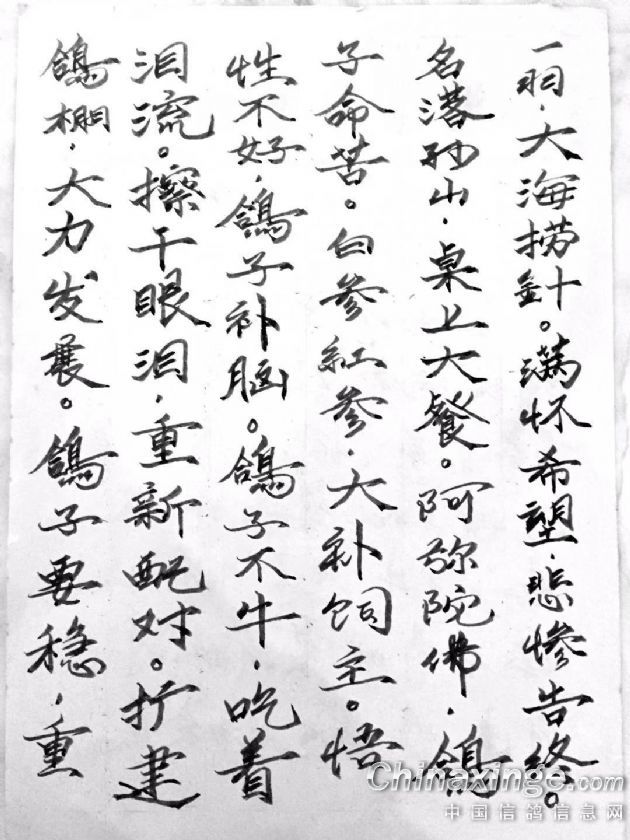 一羽，大海捞針。满怀希望，悲惨告终。
名落孙山，桌上大餐。阿弥陀佛，鸽
子命苦。白参紅参，大补饲主。悟
性不好，鸽子补脑。鸽子不牛，吃着
泪流。擦干眼泪，重新配对。扩建
鸽棚，大力发展。鸽子要稳，重
Chinaxinge.com
中国信鸽信息网